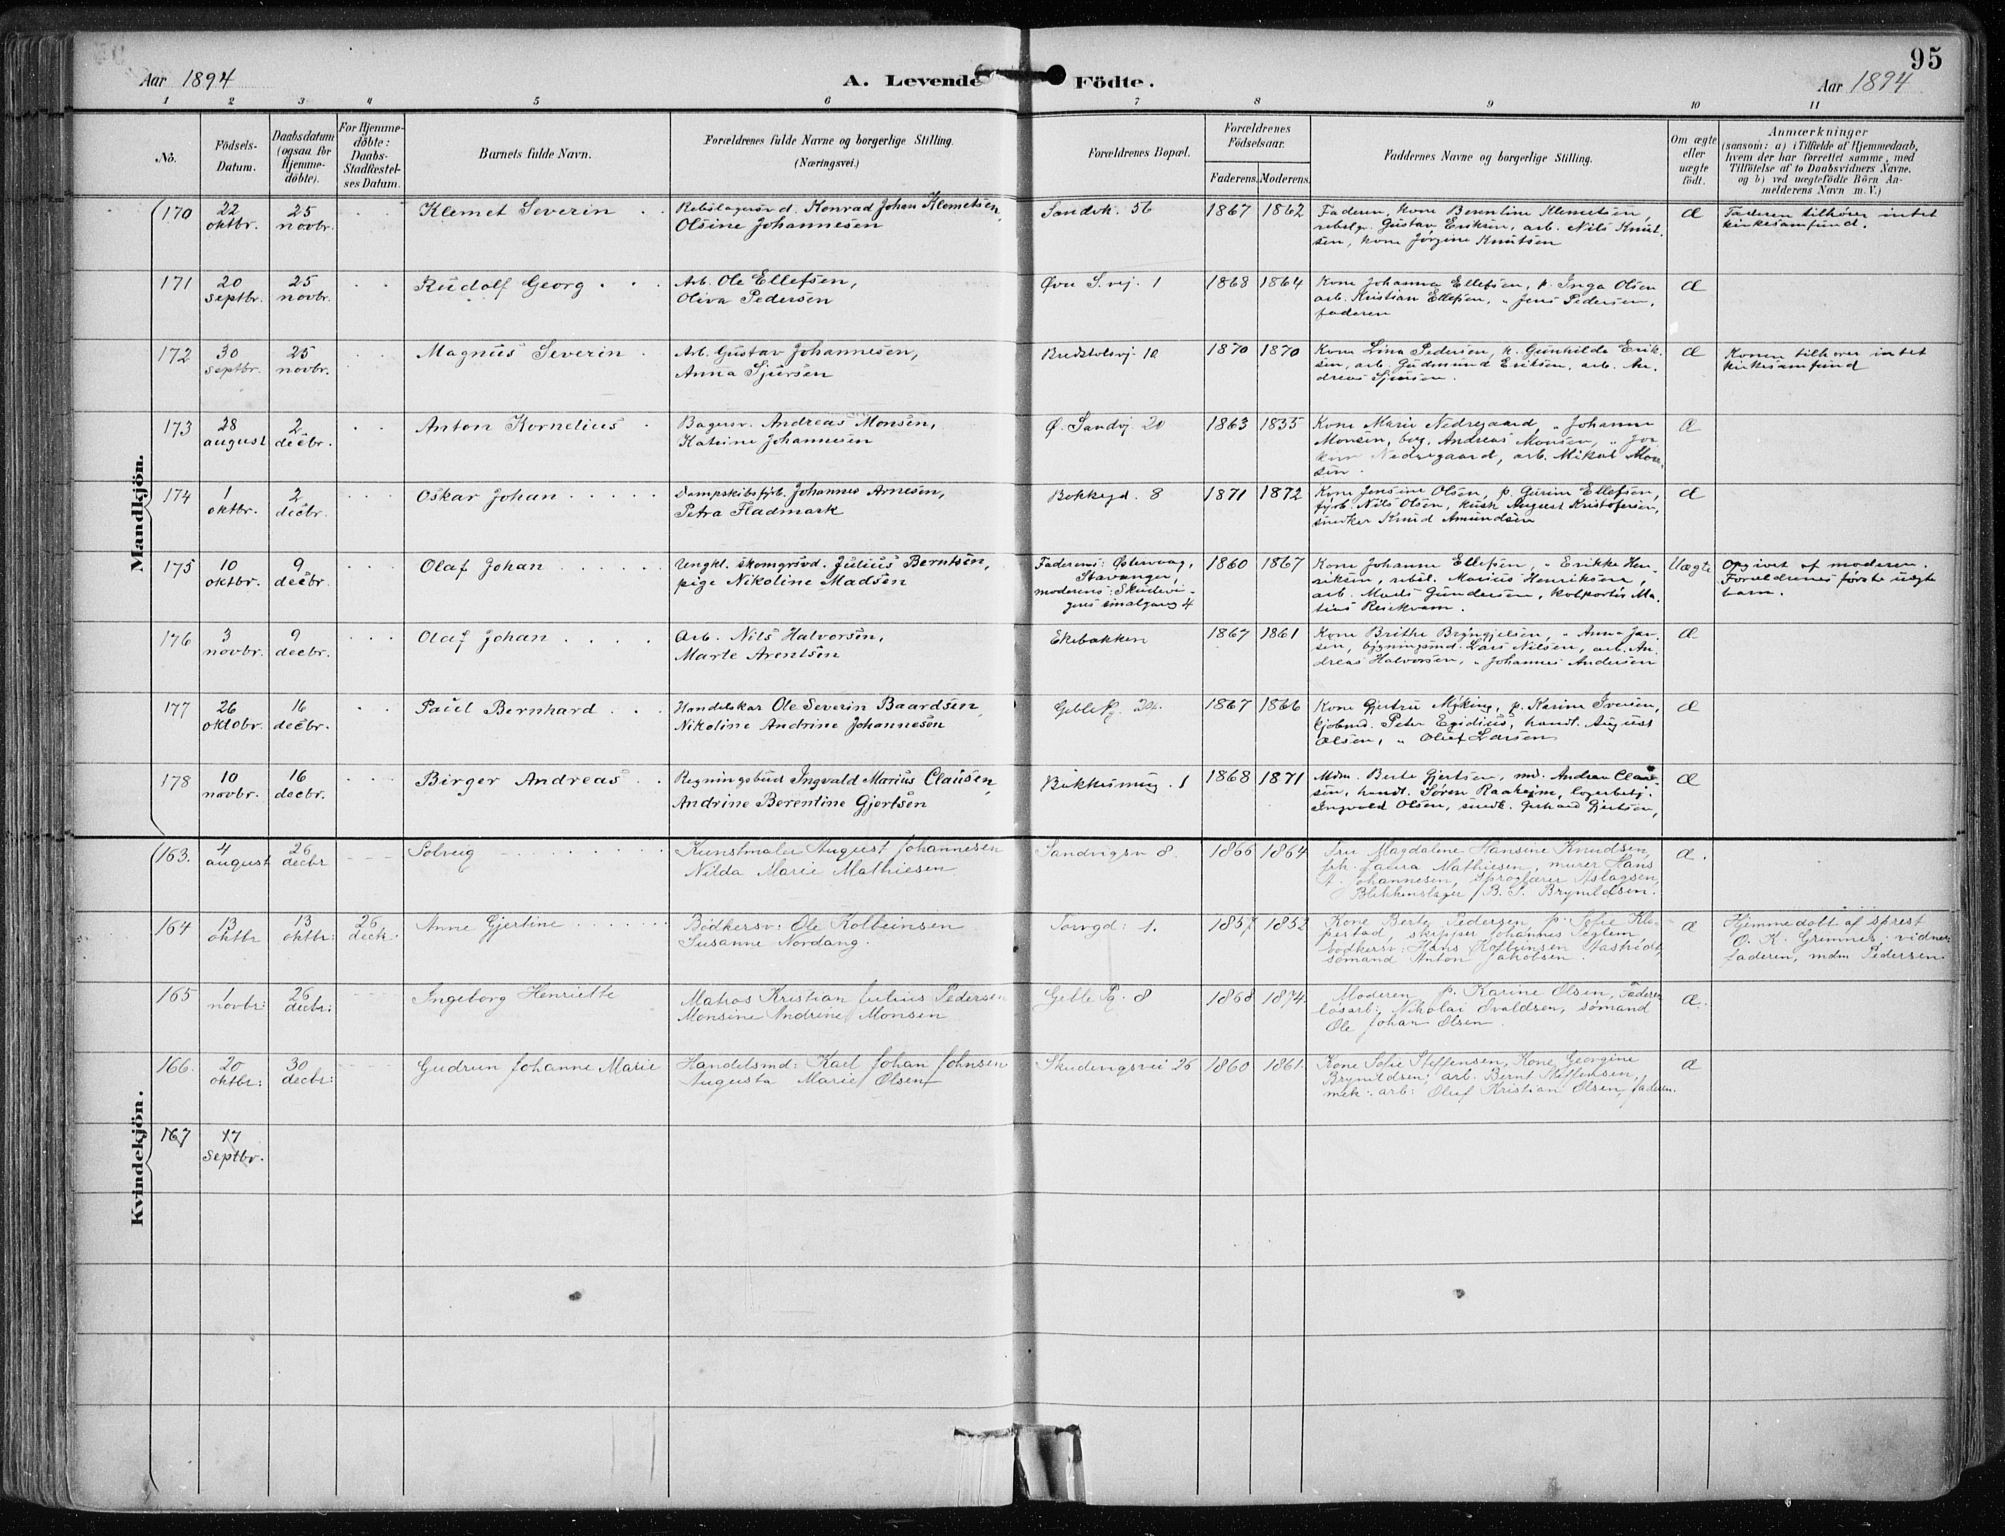 95
Aar 1894
A. Levende Födte.
Aar 1894
1 2 3 4 5 6 7 8 9 10 11
No.
Födsels-
Datum.
Daabsdatum
(ogsaa for
Hjemme-
döbte).
For Hjemme-
döbte:
Daabs-
Stadfæstel-
ses Datum.
Barnets fulde Navn.
Forældrenes fulde Navne og borgerlige Stilling.
(Næringsvei.)
Forældrenes Bopæl.
Forældrenes
Födselsaar.
Faderens. Moderens.
Faddernes Navne og borgerlige Stilling.
Om ægte
eller
uægte
födt.
Anmærkninger
(saasom: a) i Tilfælde af Hjemmedaab,
hvem der har forrettet samme, med
Tilföielse af to Daabsvidners Navne.
og b) ved uægtefödte Börn An-
melderens Navn m. V.)
Mandkjön.
170
22
oktbr.
25
novbr.
Klemet Severin
Rebslagersv d. Konrad Johan Klemetsen,
Olsine Johannesen
Sandvk. 56
1867 1862
Faderen, kone Berentine Klemetsen,
rebslgr. Gustav Eriksen, arb. Nils Knut-
sen, kone Jørgine Knutsen
æ
Faderen tilhører intet
kirkesamfund.
171
20
septbr.
25
novbr.
Rudolf Georg
Arb. Ole Ellefsen,
Oliva Pedersen
Øvre S.vej. 1
1868 1864
Kone Johanna Ellefsen, p. Inga Olsen
arb. Kristian Ellefsen, " Jens Pedersen,
faderen
æ
172
30
septbr.
25
novbr.
Magnus Severin
Arb. Gustav Johannesen,
Anna Sjursen
Bredstolsvj 10
1870 1870
Kone Lina Pedersen, k. Gunhilda Erik-
sen, arb. Gudmund Eriksen, arb. An-
dreas Sjursen.
æ
Konen tilhører intet
kirkesamfund
173
28
august
2
decbr.
Anton Kornelius
Bagersv. Andreas Monsen,
Katrine Johannesen
Ø. Sandvj 20
1863 1835
Kone Marie Nedregaard, " Johanne
Monsen, bag. Andreas Monsen, "
Nedregaard, arb. Mikal Mon-
sen.
æ
174
1
oktbr.
2
decbr.
Oskar Johan
Dampskibsfyrb. Johannes Arnesen,
Petra Fladmark
Bakkegd. 8
1871 1872
Kone Jensine Olsen, p. Gurine Ellefsen,
fyrb. Nils Olsen, kusk August Kristofersen,
snedker Knud Amundsen
æ
175
10
oktbr.
9
decbr.
Olaf Johan
Ungkl. skomgrsvd. Julius Berntsen,
pige Nikoline Madsen
Faderens: Østervaag,
Stavanger,
moderens: Skudevi-
gens smalgang 4
1860 1867
Kone Johanne Ellefsen, " Erikke Hen-
riksen, rebsl. Marius Henriksen,
arb. Mads Gundersen, kolportør Ma-
tias Reiekvam.
Uægte
Opgivet af moderen.
Forældrenes første uægte
barn.
176
3
novbr.
9
decbr.
Olaf Johan
Arb. Nils Halvorsen,
Marte Arentsen
Ekebakken
1867 1861
Kone Brithe Bryngjelsen, " Anna Jan-
sen, bygningssnd. Lars Nilsen, arb. An-
dreas Halvorsen, " Johannes Andersen
æ
177
26
oktobr.
16
decbr.
Paul Bernhard
Handelskar Ole Severin Baardsen,
Nikoline Andrine Johannesen
Geble Pg. 20
1867 1866
Kone Gjertru Myking, p. Karine Iversen,
kjøbmd. Peter Egidius, handl. August
Olsen, " Oluf Larsen
æ
178
10
novbr.
16
decbr.
Birger Andreas
Regningsbud Ingvald Marius Clausen,
Andrine Berentine Gjertsen
1
1868 1871
Mdm. Berte Gjertsen, md. Andrea Clau-
sen, handl. Søren Raaheim, lagerbetj.
Ingvald Olsen, snedk. Gerhard Gjertsen,
æ
Kvindekjön.
163.
4
august
26
decbr
Solveig
Kunstmaler August Johannesen
Nilda Marie Mathiesen
Sandvigsv 8.
1866 1864
Fru Magdalene Hansine Knudsen,
frk. Laura Mathiesen, murer Hans
J. Johannesen, sproglærer Aslagsen,
Blikkenslager B. S. Brynildsen.
æ.
164
13
oktbr
13
oktbr:
26
decb.
Anne Gjertine
Bødkersv: Ole Kolbeinsen
Susanne Nordang.
Torvgd: 1.
1857 1852
Kone Berte Pedersen p: Sofie Kle-
pestad, skipper Johannes Seglem
bødkersv: Hans Kolbeinsen Aastvedt,
sømand Anton Jakobsen.
æ
Hjemmedøbt af sprest
O. K. Grimnes: vidner
faderen, mdm Pedersen.
165
1
novbr:
26
decbr:
Ingeborg Henriette
Matros Kristian Julius Pedersen
Monsine Andrine Monsen
Geble Pg. 8
1868 1874.
Moderen p: Karine Olsen, Faderen
løsarb: Nikolai Evaldsen, sømand
Ole Johan Olsen.
æ.
166.
20
oktbr:
30
decbr:
Gudrun Johanne Marie
Handelsmd: Karl Johan Johnsen
Augusta Marie Olsen
Skudevigsvei 26
1860 1861.
Kone Sofie Steffensen, Kone Georgine
Brynildsen, arb. Bernt Steffensen,
mek: arb: Oluf Kristian Olsen, faderen.
æ
167
17
septbr.